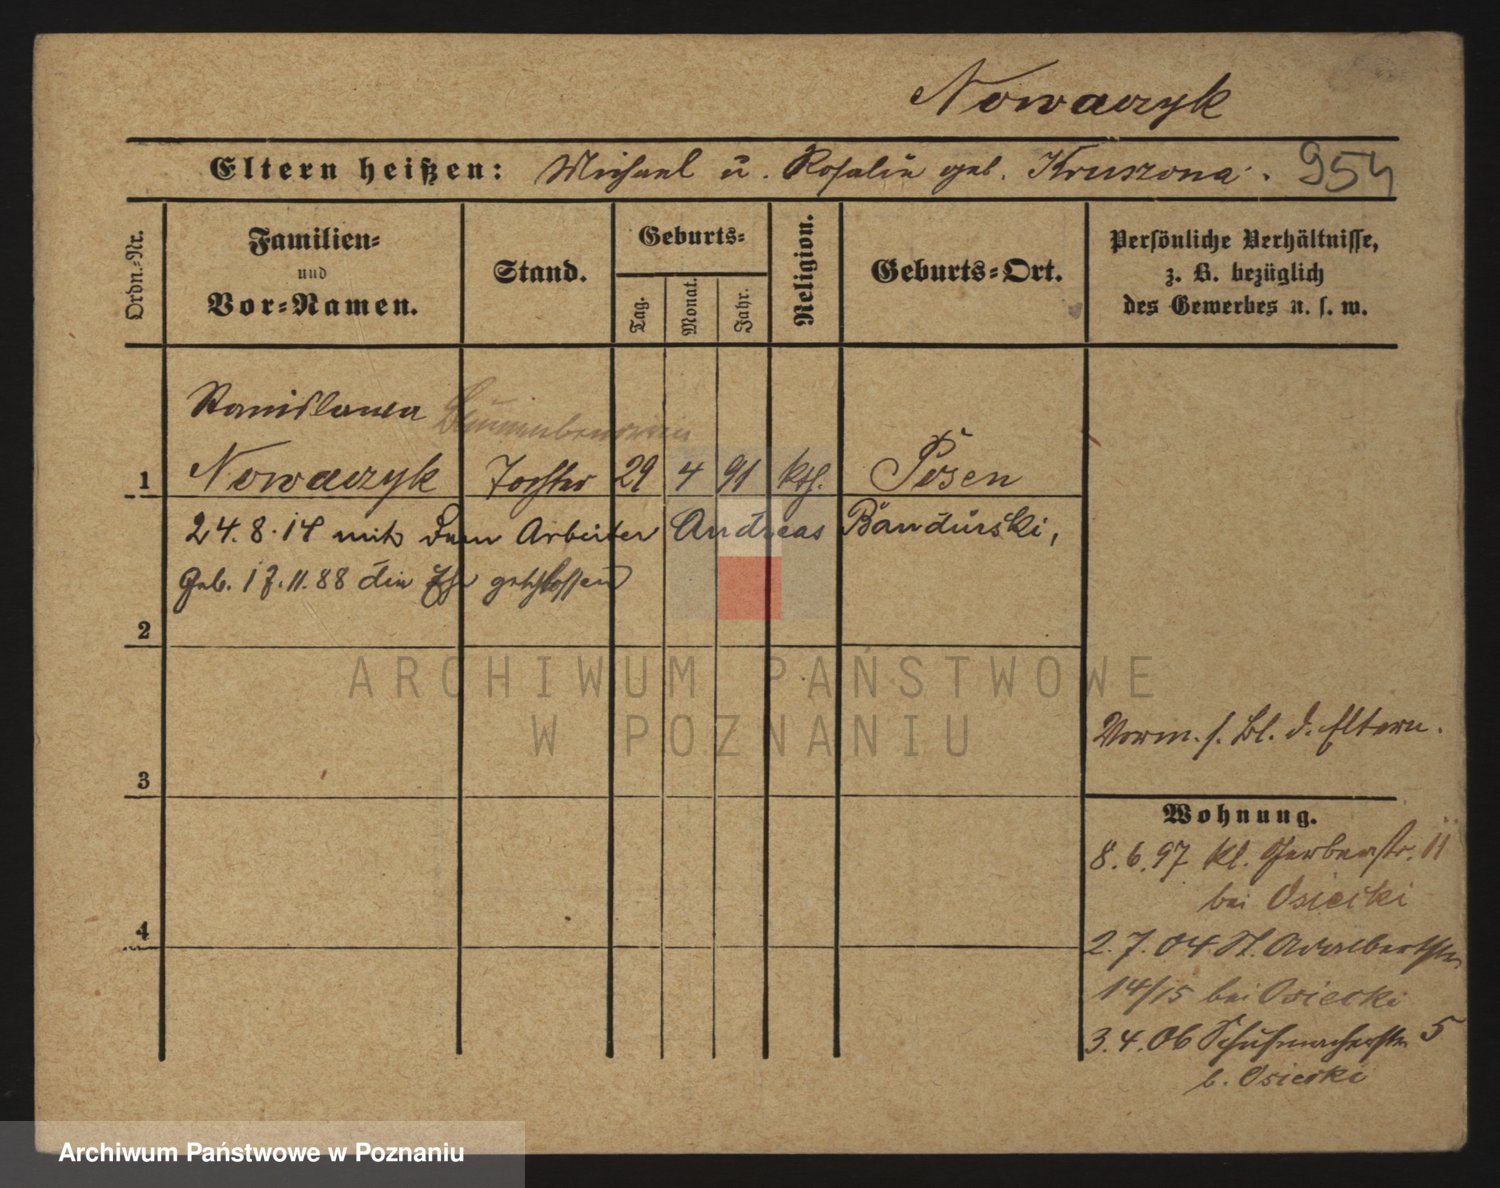 Nowaczyk
Eltern heißen: Michael u. Rosalie geb. Kruszona. 954
Ordn.-Nr.
Familien-
und
Vor-Namen.
Stand.
Geburts-
Tag.
Monat.
Jahr.
Religion.
Geburts-Ort.
Persönliche Verhältnisse,
z. B. bezüglich
des Gewerbes u. s. w.
Stanislawa
1 Nowaczyk Tochter 29 4 91 kth. Posen
24. 8. 14 mit dem Arbeiter Andreas Bandurski,
geb. 17. 11. 88 die Ehe geschlossen
2
3
4
Vorm. s. Bl. d. Eltern.
Wohnung.
8. 6. 97 kl. Gerberstr. 11
bei Osiecki
2. 7. 04. St. Adalbertstr
14/15 bei Osiecki
3. 4. 06 Schuhmacherstr 5
b. Osiecki
ARCHIWUM PAŃSTWOWE
W POZNANIU
Archiwum Państwowe w Poznaniu